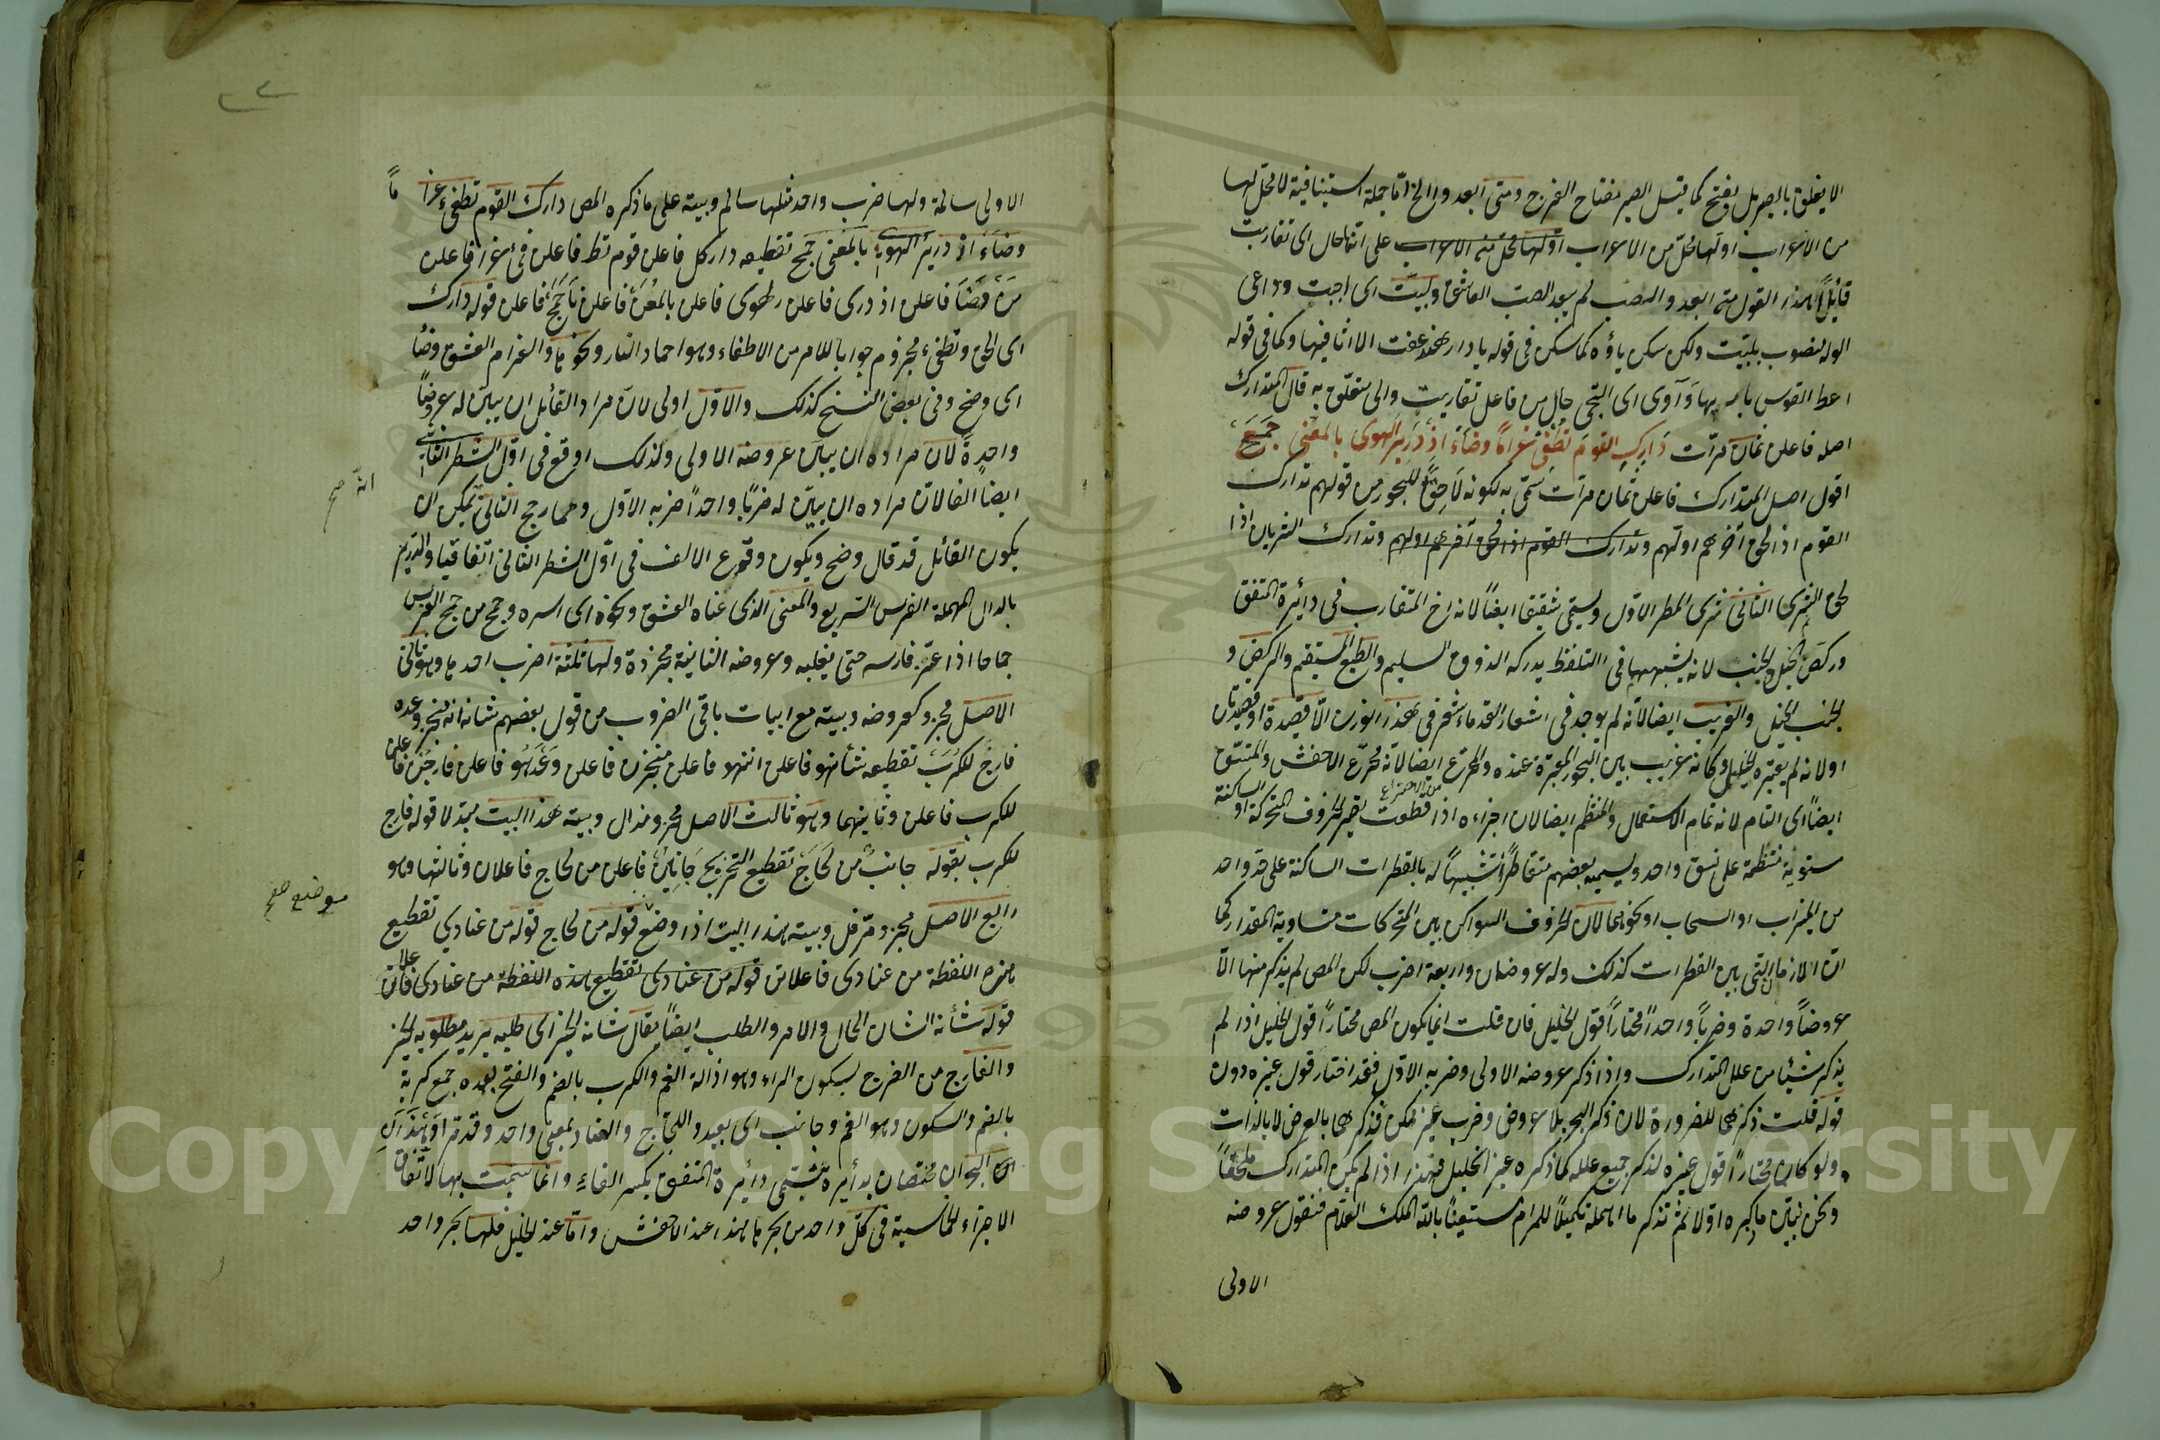 الا يغلق بالصبر بل يفتح كما قيل الصبر مفتاح الفرج ومتى ابعد والخ اما جملة استينافية لا محل لها
من الاعراب او لها محل من الاعراب على انها حال اى تقاربت
قائلا بهذا القول متى ابعد والصب لم يبعد الصب العاشق ولبيت اى اجبت وداعى
الوله منصوب بلبيت ولكن سكن ياؤه كما سكن فى قوله يا دار هند عفت الا اثافيها وكما فى قوله
اعط القوس باريها وآوى اى التجى حال من فاعل تقاربت والى متعلق به قال المتدارك
اصله فاعلن ثمان مرات دارك القوم تطفئ غراما وضاء اذ درير الهوى بالمعنى جمح
اقول اصل المتدارك فاعلن ثمان مرات سمى به لكونه لاحقا للبحور من قولهم تدارك
القوم اذا لحق آخرهم اولهم وتدارك القوم اذا لحق آخرهم اولهم وتدارك الثريان اذا
لحق الثرى الثانى ثرى المطر الاول ويسمى شقيقا ايضا لانه اخ المتقارب فى دائرة المتفق
وركض الخيل والخبب لانه يشبههما فى التلفظ يدركه الذوق السليم والطبع المستقيم والركض و
الخبب للخيل والغريب ايضا لانه لم يوجد فى اشعار القدماء شعر فى هذا الوزن الا قصيدة او قصيدتان
اولا نه لم يعتبره الخليل وكانه غريب بين البحور المعتبرة عنده والمخترع ايضا لانه مخترع الاخفش والمتسق
من الاختراع
ايضا اى التام لانه تمام الاستعمال والمنتظم ايضا لان اجزاءه اذا قطعت تصير الحروف المتحركة او الساكنة
مستوية منتظمة على نسق واحد ويسميه بعضهم متقاطرا تشبيها له بالقطرات الساكنة على حد واحد
من الميزاب او السحاب او نحوهما لان الحروف السواكن بين المتحركات متساوية المقدار كما
ان الازمان التى بين القطرات كذلك وله عروضان واربعة اضرب لكن المص لم يذكر منها الا
عروضا واحدة وضربا واحدا مختارا قول الخليل فان قلت انما يكون المص مختارا قول الخليل اذا لم
يذكر شيئا من علل المتدارك واذا ذكر عروضه الاولى وضربه الاول فقد اختار قول غيره دون
قوله قلت ذكرهما للضرورة لان ذكر البحر بلا عروض وضرب غير ممكن فذكرهما بالعرض لا بالذات
ولو كان مختارا قول غيره لذكر جميع علله كما ذكره غير الخليل فهذا اذا لم يكن المتدارك ملحقا
ونحن نبين ما ذكره اولا ثم نذكر ما اهمله تكميلا للمرام مستعينا بالله الملك العلام فنقول عروضه
الاولى
الاولى سالمة ولها ضرب واحد مثلها سالم وبيته على ما ذكره المص دارك القوم تطفئ غرا ما
وضاء اذ درير الهوى بالمعنى جمح تقطيعه دارك ل فاعلن قوم تط فاعلن فئ غرا فاعلن
من وضا فاعلن اذ درى فاعلن رلهوى فاعلن بالمعن فاعلن نا جمح فاعلن قوله دارك
اى الحق وتطفئ مجزوم جوابا للامر من الاطفاء وهو اخماد النار ونحوها والغرام العشق وضاء
اى وضح وفى بعض النسخ كذلك والاول اولى لان مراد القائل ان يبين له عروضا
واحدة لان مراده ان يبين عروضه الاولى ولذلك اوقع فى اول الشطر الثانى
ايضا الفا لان مراده ان يبين له ضربا واحدا ضربه الاول ومما رجح الثانى يمكن ان
انه صح
يكون القائل قد قال وضح ويكون وقوع الالف فى اول الشطر الثانى اتفاقيا والدرير
بالدال المهملة الفرس السريع والمعنى الذى عناه العشق ونحوه اى اسره وجمح من جمح الفرس
جماحا اذا عثر فارسه حتى يغلبه وعروضه الثانية مجزوة ولها ثلثة اضرب احدها وهو ثانى
الاصل مجزو كعروضه وبيته مع ابيات باقى الضروب من قول بعضهم شانه انه منجز وعده
فارج لكرب تقطيعه شأنهو فاعلن اننهو فاعلن منجزن فاعلن وعدهو فاعلن فارجن فاعلن
للكرب فاعلن وثانيهما وهو ثالث الاصل مجزو مذال وبيته هذا البيت مبدلا قوله فارج
لكرب بقوله جانب من لحاج تقطيع التخريج جانبن فاعلن من لحاج فاعلان وثالثها وهو
رابع الاصل مجزو مرفل وبيته هذا البيت اذا وضع قوله من لحاج قوله من عنادي تقطيع
موضع صح
هذه اللفظة من عنادى فاعلاتن قوله من عنادى تقطيع هذه اللفظة من عنادى فاعلاتن
قوله شأنه الشان الحال والامر والطلب ايضا يقال شانه الخير اى طلبه يريد مطلوبه الخير
والفارج من الفرج بسكون الراء وهو اذالة الغم والكرب بالضم والفتح بعده جمع كربة
بالضم والسكون وهو الغم وجانب اى بعيد واللجاج والعناد بمعنى واحد وقد مر او هذان
البحران مختصان بدائرة تسمى دائرة المتفق بكسر الفاء وانما سميت بها لاتفاق
الاجزاء الخماسية فى كل واحد من بحريها هذا عند الاخفش واما عند الخليل فلها بحر واحد
Copyright © King Saud University